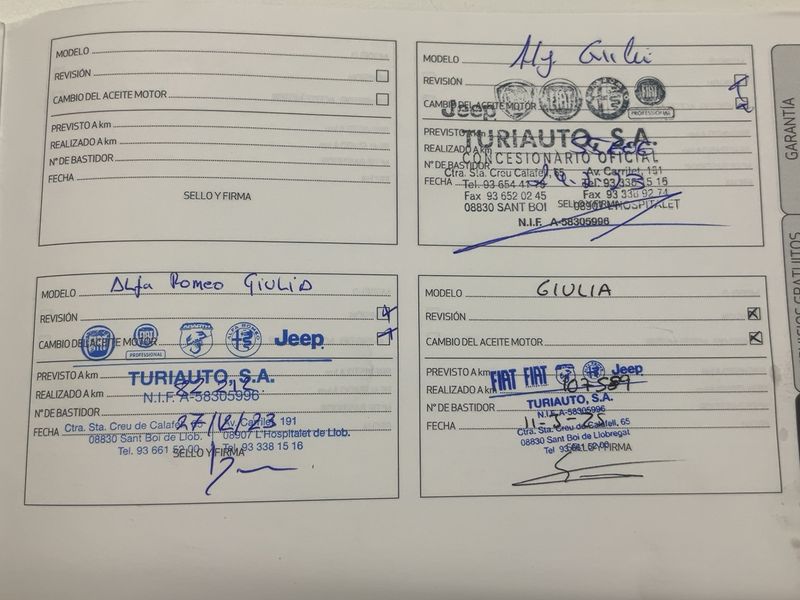 MODELO
REVISIÓN
CAMBIO DEL ACEITE MOTOR
PREVISTO A km
REALIZADO A km
N° DE BASTIDOR
FECHA
SELLO Y FIRMA
MODELO Giulia
REVISIÓN
CAMBIO DEL ACEITE MOTOR
Jeep FIAT PROFESSIONAL
PREVISTO A km
TURIAUTO, S.A.
REALIZADO A km
CONCESIONARIO OFICIAL
N° DE BASTIDOR
Ctra. Sta. Creu Calafell, 65 Av. Carrilet, 191
FECHA
Tel. 93 654 41 Tel. 93 338 15 16
Fax 93 652 02 45 Fax 93 336 92 74
SELLO Y FIRMA
08830 SANT BOI 08901 L'HOSPITALET
N.I.F. A-58305996
MODELO Alfa Romeo GIULIA
REVISIÓN
CAMBIO DEL ACEITE MOTOR
FIAT PROFESSIONAL ABARTH ALFA ROMEO Jeep
PREVISTO A km
TURIAUTO, S.A.
REALIZADO A km
N.I.F. A-58305996
N° DE BASTIDOR
27/12/23
FECHA
Ctra. Sta. Creu de Calafell Av. Carrilet, 191
08830 Sant Boi de Llob. 08907 L'Hospitalet de Llob.
Tel. 93 661 52 00 Tel. 93 338 15 16
SELLO Y FIRMA
MODELO GIULIA
REVISIÓN
CAMBIO DEL ACEITE MOTOR
PREVISTO A km
FIAT FIAT Jeep
REALIZADO A km 107589
TURIAUTO, S.A.
N° DE BASTIDOR
N.I.F. A-58305996
FECHA
Ctra. Sta. Creu de Calafell, 65
08830 Sant Boi de Llobregat
Tel. 93 661 52 00
SELLO Y FIRMA
GARANTÍA